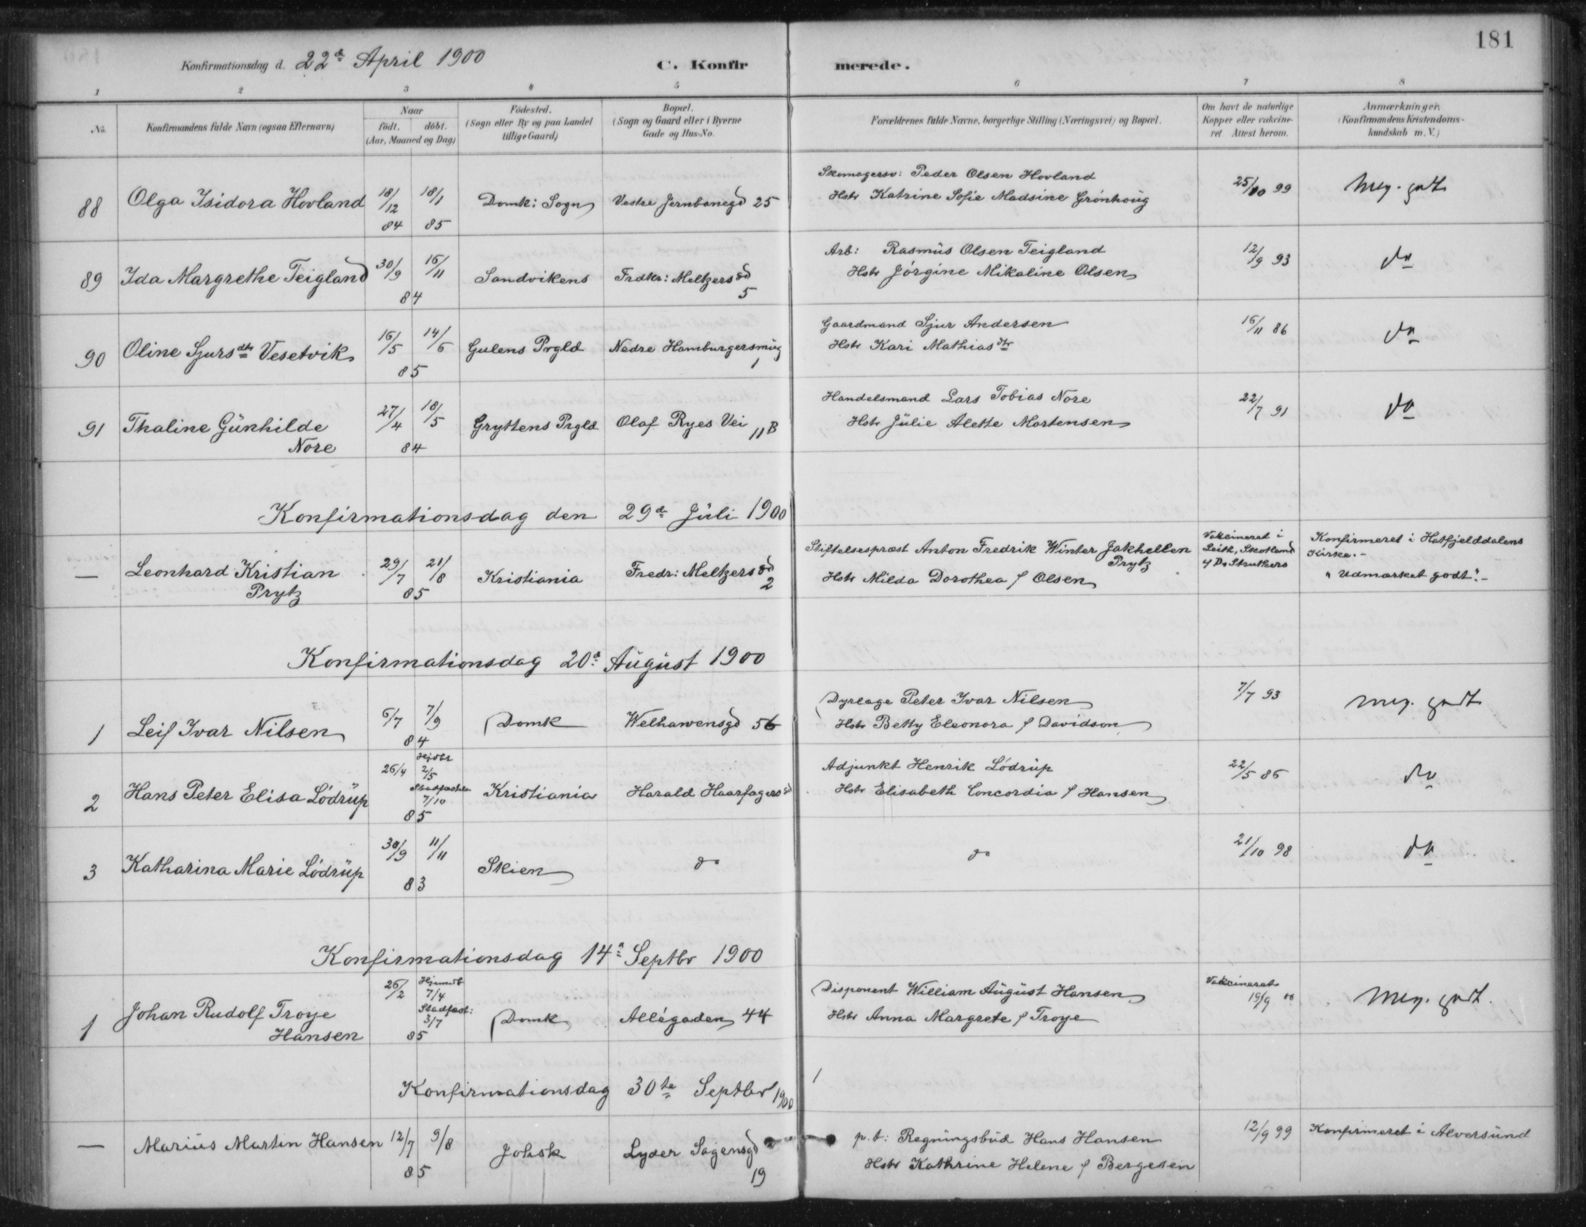 181
Konfirmationsdag d. 22de April 1900
C. Konfirmerede.
1 2 3 4 5 6 7 8
No. Konfirmandens fulde Navn (ogsaa Efternavn)
Naar født. døbt. (Aar, Maaned og Dag)
Fødested. (Sogn eller By og paa Landet tillige Gaard)
Bopæl. (Sogn og Gaard eller i Byerne Gade og Hus-No.
Forældrenes fulde Navne, borgerlige Stilling (Næringsvei) og Bopæl.
Om havt de naturlige Kopper eller vakcineret Attest herom.
Anmærkninger. (Konfirmandens Kristendomskundskab m. V.)
88 Olga Isidora Hovland 18/12 84 18/1 85 Domk: Sogn Vestre Jernbanegd 25
Skomagersv: Peder Olsen Hovland 25/10 99 Meg. godt
Hstr Katrine Sofie Madsine Grønhoug
89 Ida Margrethe Teigland 30/9 16/11 84 Sandvikens Frdkr: Meltzersgd 5
Arb: Rasmus Olsen Teigland 12/9 93 do
Hstr Jørgine Mikaline Olsen
90 Oline Sjursdtr Vesetvik 16/5 14/6 85 Gulens Prgld Nedre Hamburgersmug 1
Gaardmand Sjur Andersen 16/11 86 do
Hstr Kari Mathiasdtr
91 Thaline Gunhilde Nore 27/4 18/5 84 Gryttens Prgld Olaf Ryes Vei 11B
Handelsmand Lars Tobias Nore 22/7 91 do
Hstr Julie Alette Mortensen
Konfirmationsdag den 29de Juli 1900
— Leonhard Kristian Prytz 29/7 21/8 85 Kristiania Fredr: Meltzersgd 2
Stiftelsespræst Anton Fredrik Winter Jakhellen Prytz
Hstr Milda Dorothea f Olsen
Vakcineret i Leith, Skotland af Dr Struthers
Konfirmeret i Hatfjelddalens Kirke. -
"Udmærket godt". -
Konfirmationsdag 20de August 1900
1 Leif Ivar Nilsen 6/7 7/9 84 Domk Welhavensgd 56
Dyrlæge Peter Ivar Nilsen 7/7 93 meg. godt
Hstr Betty Eleonora f Davidson
2 Hans Peter Elisa Lødrup 26/4 Hjdbt 2/5 Stadfæstes 7/10 85 Kristiania Harald Haarfagersgd
Adjunkt Henrik Lødrup 22/5 86 do
Hstr Elisabeth Concordia f Hansen
3 Katharina Marie Lødrup 30/9 11/11 83 Skien do
do 21/10 98 do
Konfirmationsdag 14de Septbr 1900
1 Johan Rudolf Troye Hansen 26/2 Hjemdb 7/4 Stadfæst: 3/7 85 Domk Allégaden 44
Disponent William August Hansen Vakcineret 15/9 Meg. godt.
Hstr Anna Margrete f Troye
Konfirmationsdag 30te Septbr 1900
— Marius Martin Hansen 12/7 9/8 85 Johsk Lyder Sagensgd 19
p.t: Regningsbud Hans Hansen 12/9 99 Konfirmeret i Alversund
Hstr Kathrine Helene f Bergesen